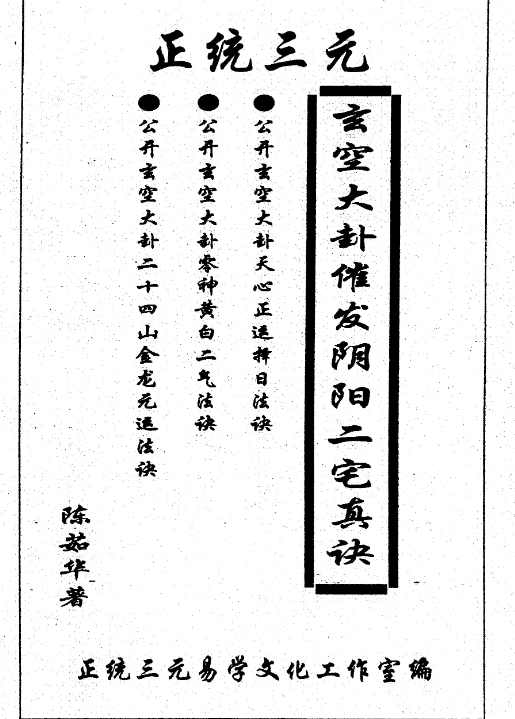 正统三元
玄空大卦催发阴阳二宅真诀
●公开玄空大卦天心正运择日法诀
●公开玄空大卦零神黄白二气法诀
●公开玄空大卦二十四山金龙元运法诀
陈茹华著
正统三元易学文化工作室编